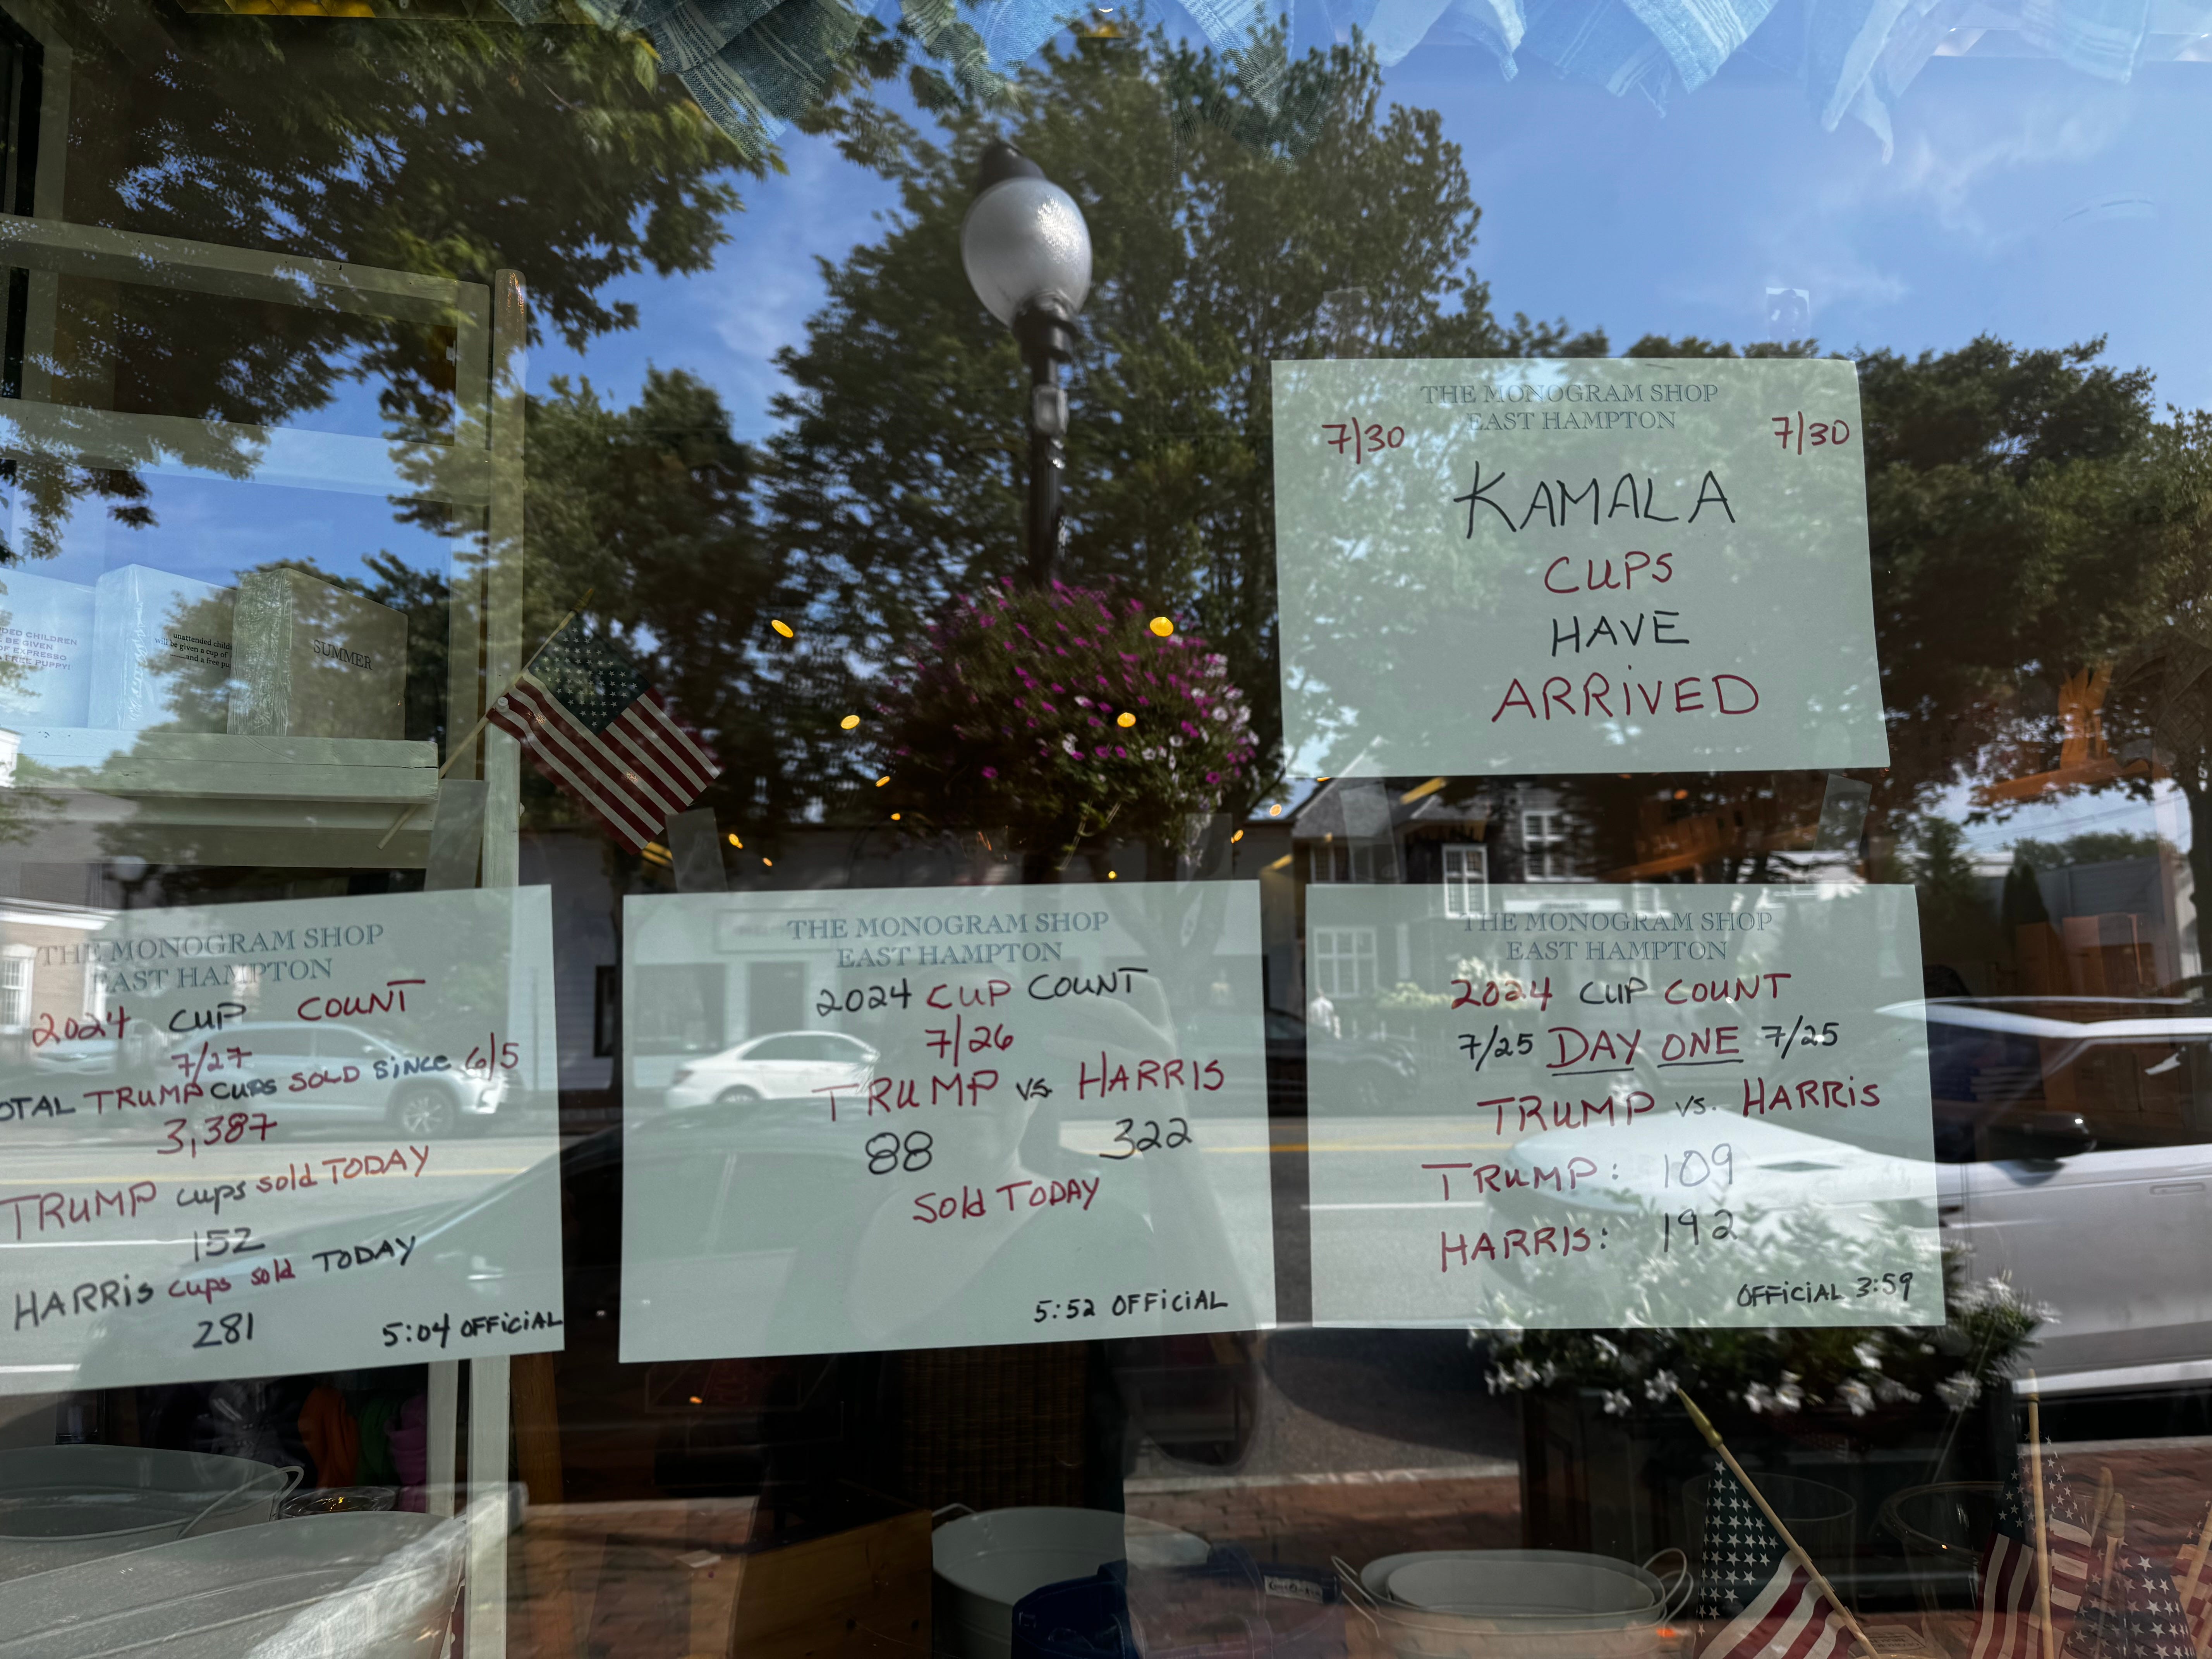 THE MONOGRAM SHOP
EAST HAMPTON
7/30 7/30
KAMALA
CUPS
HAVE
ARRIVED
CHILDREN
BE GIVEN
OF EXPRESSO
FREE PUPPY!
unattended
will be given a cup of
and a free
SUMMER
THE MONOGRAM SHOP
EAST HAMPTON
2024 CUP COUNT
7/27
TRUMP CUPS SOLD SINCE 6/5
3,387
TRUMP cups sold TODAY
152
HARRIS cups sold TODAY
281
5:04 OFFICIAL
THE MONOGRAM SHOP
EAST HAMPTON
2024 CUP COUNT
7/26
TRUMP vs. HARRIS
88 322
Sold TODAY
5:52 OFFICIAL
THE MONOGRAM SHOP
EAST HAMPTON
2024 CUP COUNT
7/25 DAY ONE 7/25
TRUMP vs. HARRIS
TRUMP: 109
HARRIS: 192
OFFICIAL 3:59